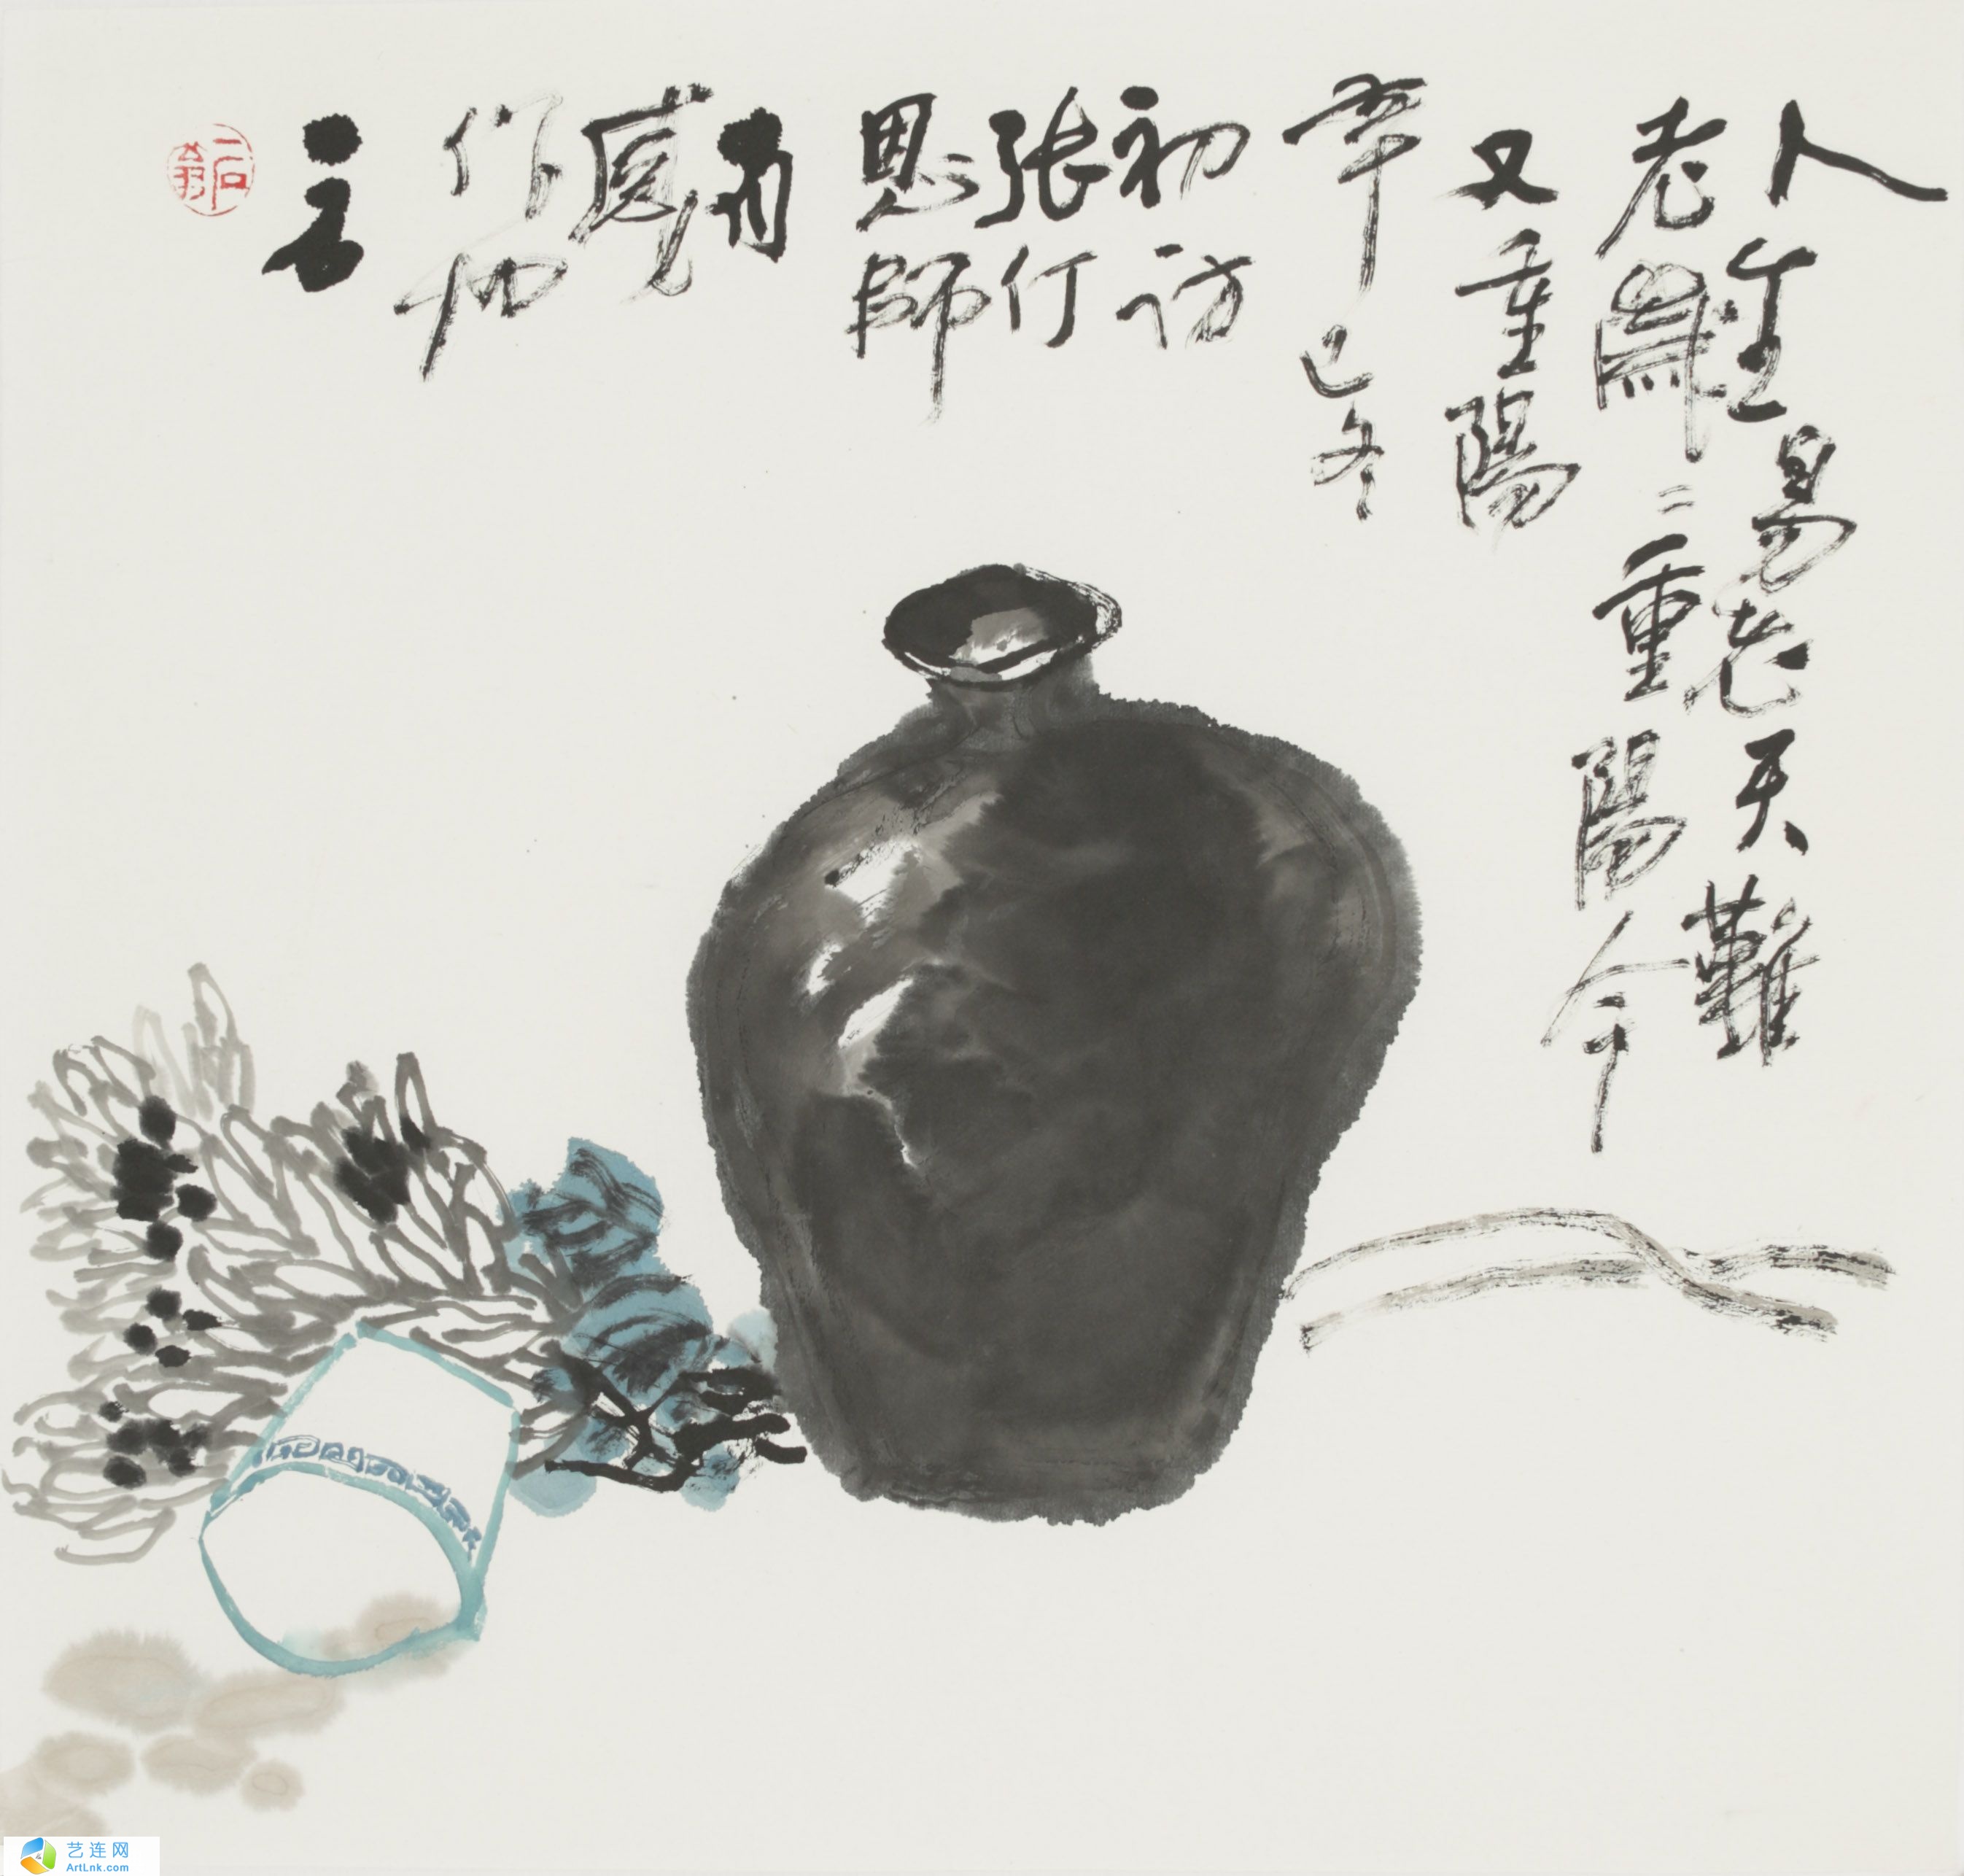 人生易老天難
老歲〻重陽今
又重陽
辛巳冬
初訪
張仃
恩師
有
感
作
艺连网
ArtLnk.com